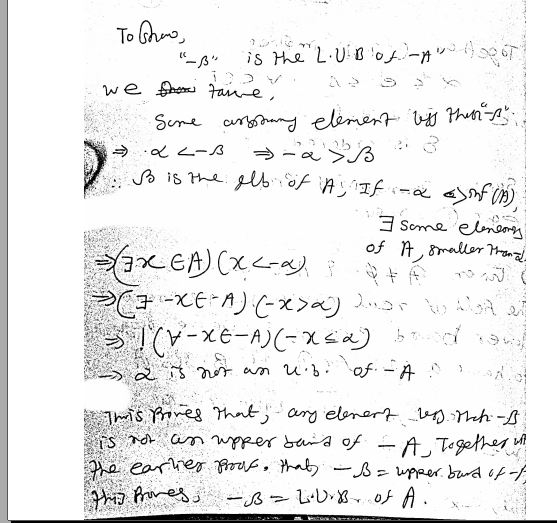 To Show,
"-β" is the L.U.B of -A"
we take,
Some arbitrary element less than "-β".
⇒ α < -β ⇒ -α > β
∴ β is the glb of A, If -α > inf (A),
∃ some element
of A, smaller than -α
⇒ (∃ x ∈ A) (x < -α)
⇒ (∃ -x ∈ -A) (-x > α)
⇒ !(∀ -x ∈ -A) (-x ≤ α)
→ α is not an u.b. of -A
This Proves that, any element less than -β
is not an upper bound of -A, Together
the earlier proof, that, -β = upper bound of -A
this Proves, -β = L.U.B. of A.